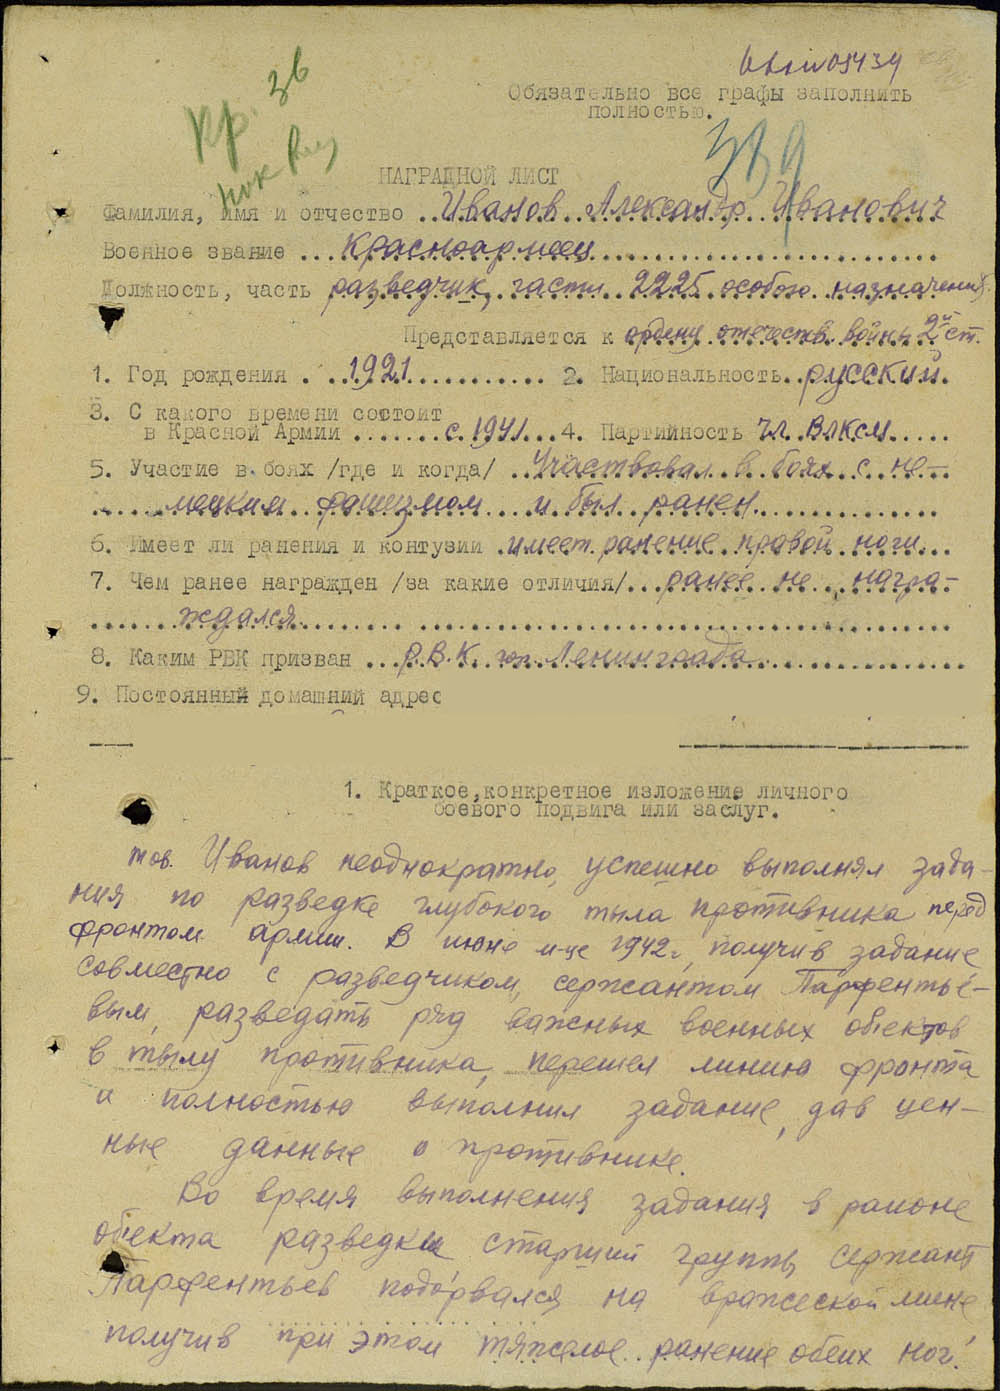 Обязательно все графы заполнить
полностью.
Кр. Зв
339
НАГРАДНОЙ ЛИСТ
Фамилия, имя и отчество ..Иванов Александр Иванович
Военное звание ... Красноармеец
Должность, часть разведчик, части 2225 особого назначения.
Представляется к ордену отечеств. войны 2й ст.
1. Год рождения . .1921............ 2. Национальность..русский.
3. С какого времени состоит
в Красной Армии .......с 1941...4. Партийность чл. ВЛКСМ.....
5. Участие в боях /где и когда/ ..Участвовал в боях с не-
мецким фашизмом и был ранен.
6. Имеет ли ранения и контузии .имеет ранение правой ноги...
7. Чем ранее награжден /за какие отличия/...ранее не награ-
ждался
8. Каким РВК призван ...Р.В.К. гор. Ленинграда
9. Постоянный домашний адрес
1. Краткое, конкретное изложение личного
боевого подвига или заслуг.
тов. Иванов неоднократно, успешно выполнял зада-
ния по разведке глубокого тыла противника перед
фронтом армии. В июне м-це 1942г., получив задание
совместно с разведчиком, сержантом Парфентье-
вым, разведать ряд важных военных обьектов
в тылу противника, перешел линию фронта
и полностью выполнил задание, дав цен-
ные данные о противнике.
Во время выполнения задания в районе
обьекта разведки старший группы сержант
Парфентьев подорвался на вражеской мине
получив при этом тяжелое ранение обеих ног.